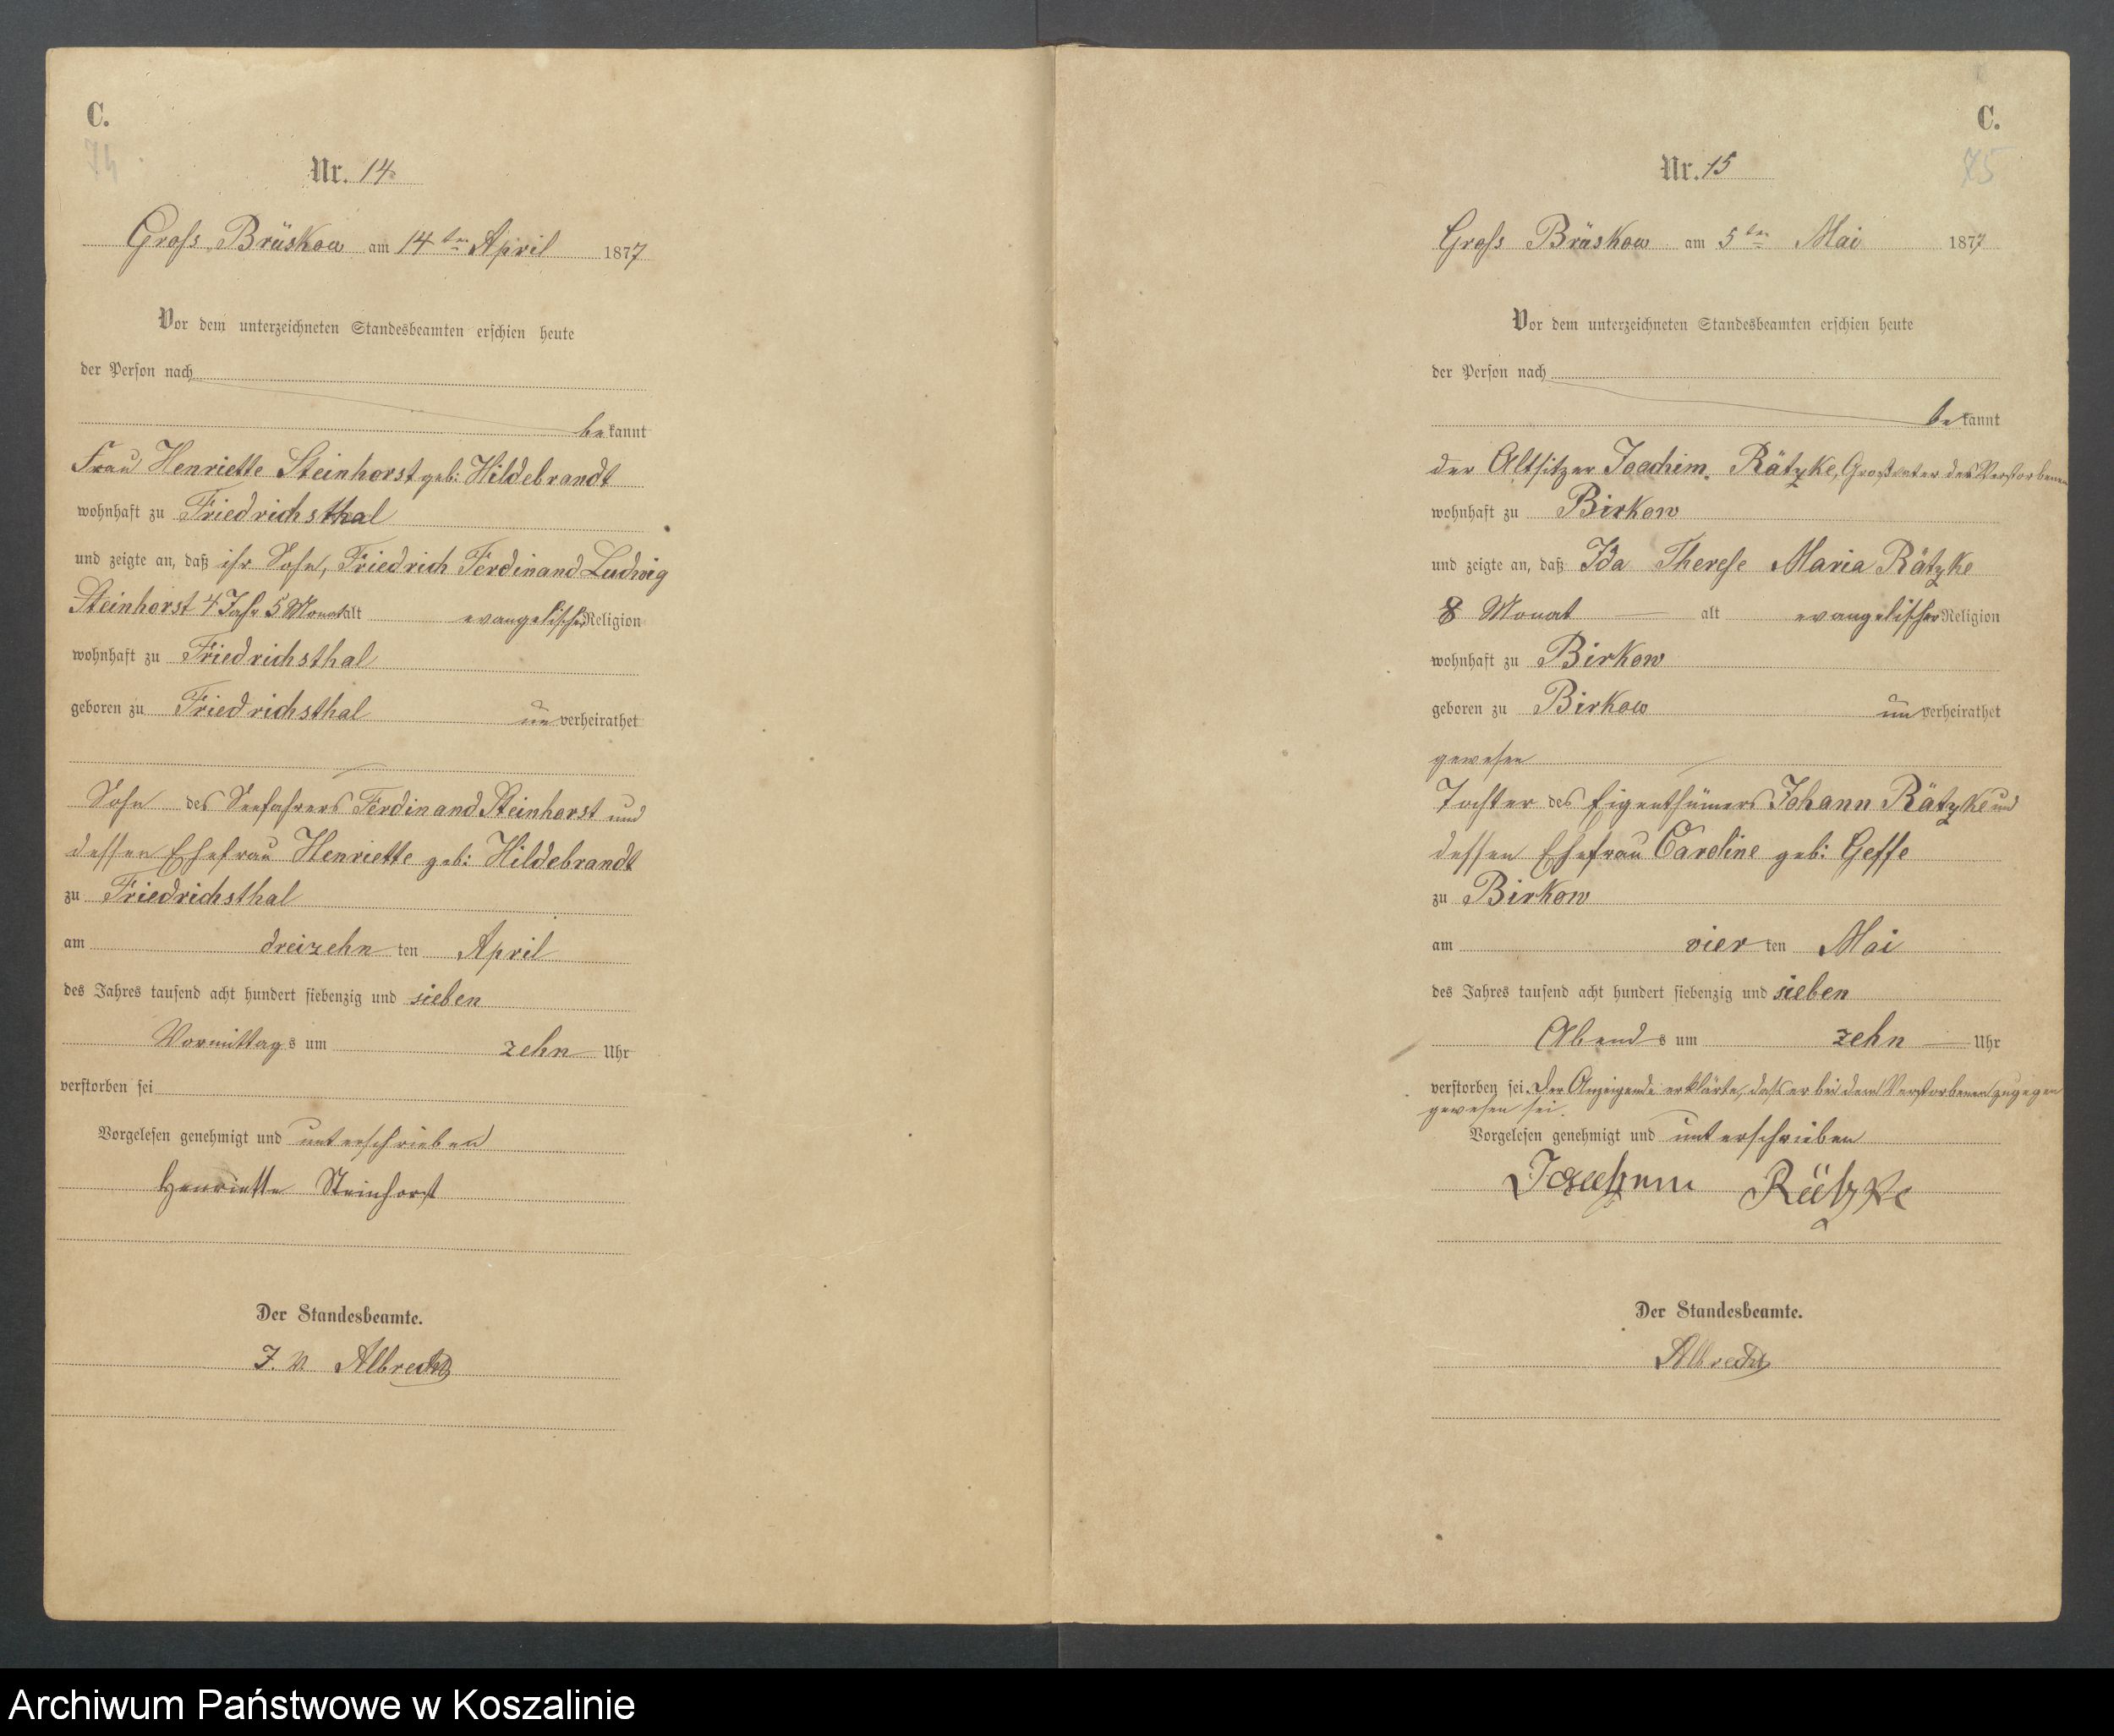 C.
74
Nr. 14
Gross Brüskow am 14ten April 1877
Vor dem unterzeichneten Standesbeamten erschien heute
der Person nach
bekannt
Frau Henriette Steinhorst geb: Hildebrandt
wohnhaft zu Friedrichsthal
und zeigte an, daß ihr Sohn, Friedrich Ferdinand Ludwig
Steinhorst 4 Jahr 5 Monat alt evangelischer Religion
wohnhaft zu Friedrichsthal
geboren zu Friedrichsthal unverheirathet
Sohn des Seefahrers Ferdinand Steinhorst und
dessen Ehefrau Henriette geb: Hildebrandt
zu Friedrichsthal
am dreizehn ten April
des Jahres tausend acht hundert siebenzig und sieben
Vormittags um zehn Uhr
verstorben sei
Vorgelesen genehmigt und unterschrieben
Henriette Steinhorst
Der Standesbeamte.
J. V. Albrecht
C.
75
Nr. 15
Gross Brüskow am 5ten Mai 1877
Vor dem unterzeichneten Standesbeamten erschien heute
der Person nach
bekannt
der Altsitzer Joachim Rätzke, Großvater des Verstorbenen
wohnhaft zu Birkow
und zeigte an, daß Ida Therese Maria Rätzke
8 Monat alt evangelischer Religion
wohnhaft zu Birkow
geboren zu Birkow unverheirathet
gewesen
Tochter des Eigenthümers Johann Rätzke und
dessen Ehefrau Caroline geb: Geffe
zu Birkow
am vier ten Mai
des Jahres tausend acht hundert siebenzig und sieben
Abends um zehn Uhr
verstorben sei. Der Anzeigende erklärte, dass er bei dem Verstorbenen zugegen
gewesen sei.
Vorgelesen genehmigt und unterschrieben
Joachim Rätzke
Der Standesbeamte.
Albrecht
Archiwum Państwowe w Koszalinie